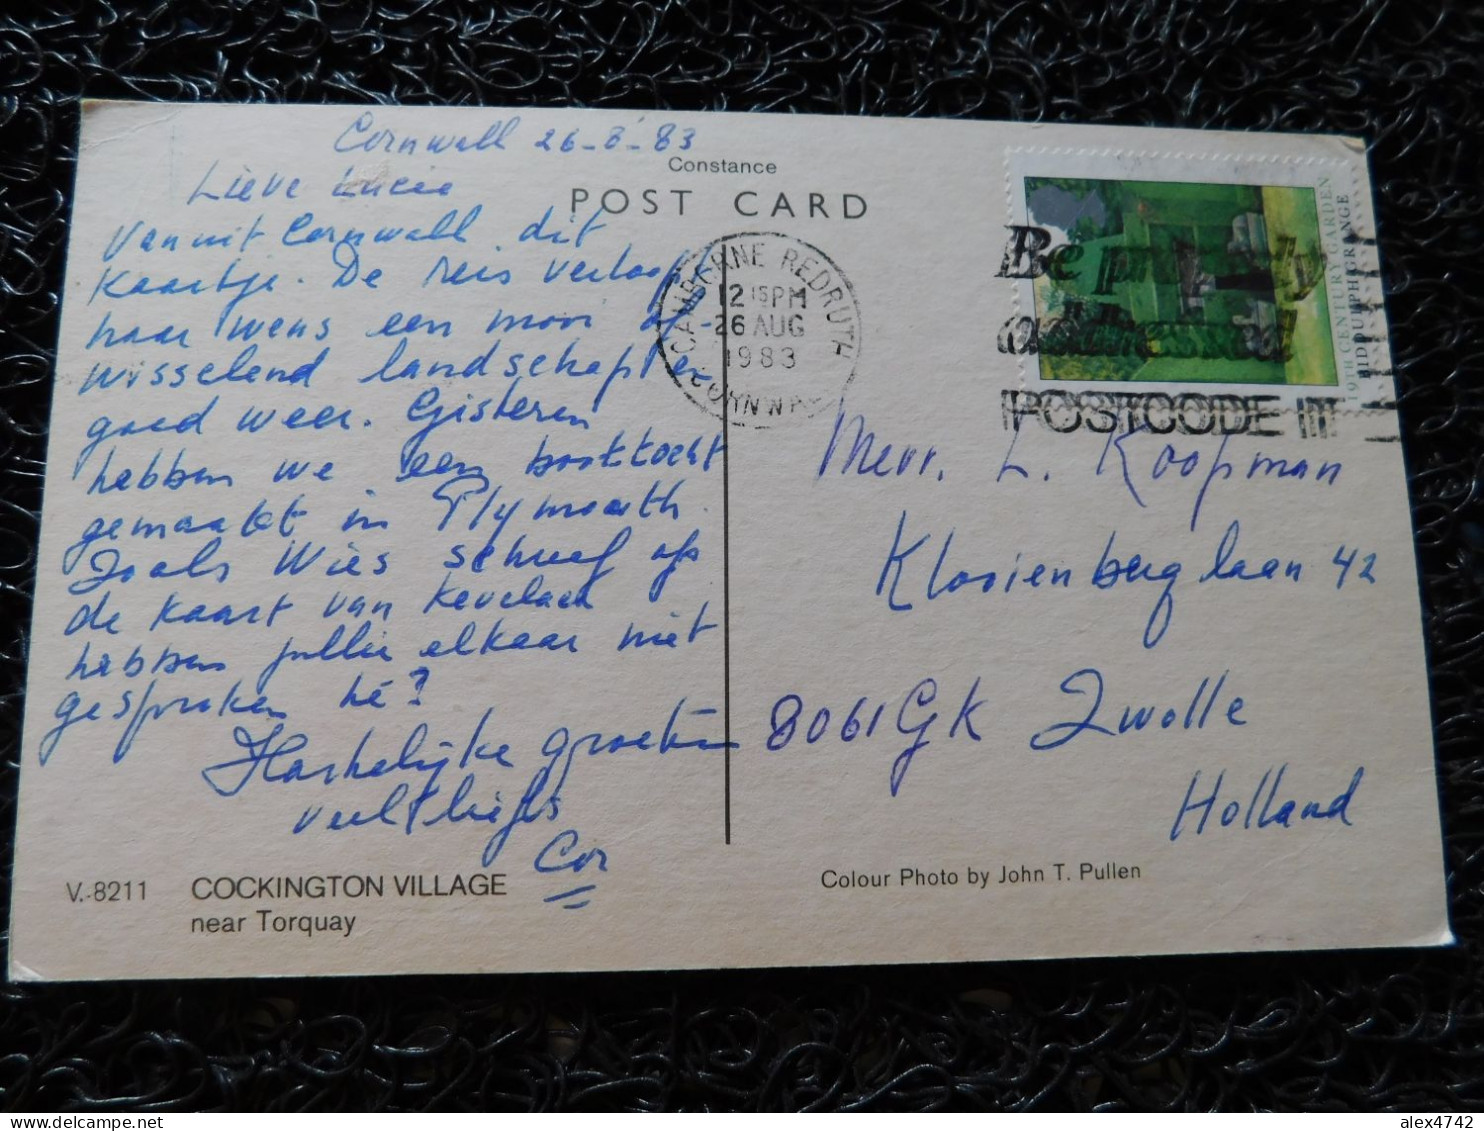 Cornwall 26-8-83
Lieve Lucie
Vanuit Cornwall dit
kaartje. De reis verloopt
naar wens een mooi af-
wisselend landschap en
goed weer. Gisteren
hebben we een boottocht
gemaakt in Plymouth.
Zoals Wies schreef op
de kaart van Kevelaer
hebben jullie elkaar niet
gesproken hè?
Hartelijke groeten
veel liefs
Cor
V.-8211 COCKINGTON VILLAGE
near Torquay
Constance
POST CARD
CAMBORNE REDRUTH
12 15PM
26 AUG
1983
CORNWALL
Be properly
addressed
POSTCODE IT
19TH CENTURY GARDEN
BIDDULPH GRANGE
Mevr. L. Koopman
Klooienberglaan 42
8061GK Zwolle
Holland
Colour Photo by John T. Pullen
alex4742